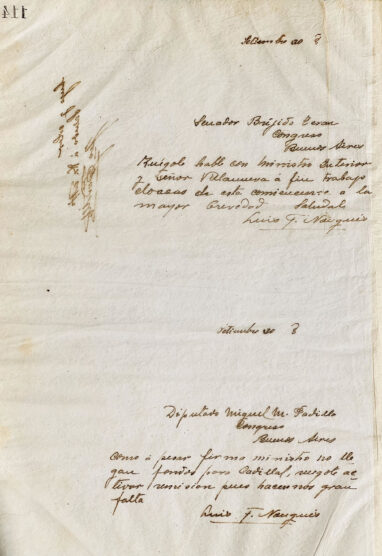 Setiembre 20 8
Senador Brigido Teran
Congreso
Buenos Aires
Ruégole hable con Ministro Interior
y Señor Villanueva á fin trabajo
cloacas de esta comiencense a la
mayor brevedad Saludalo
Luis F. Nougués
Setiembre 20 8
Diputado Miguel M. Padilla
Congreso
Buenos Aires
Como á pesar firma ministro no lle
gan fondos para Cadillal, ruégole ac
tivar remision pues hacen nos gran
falta
Luis F. Nougués